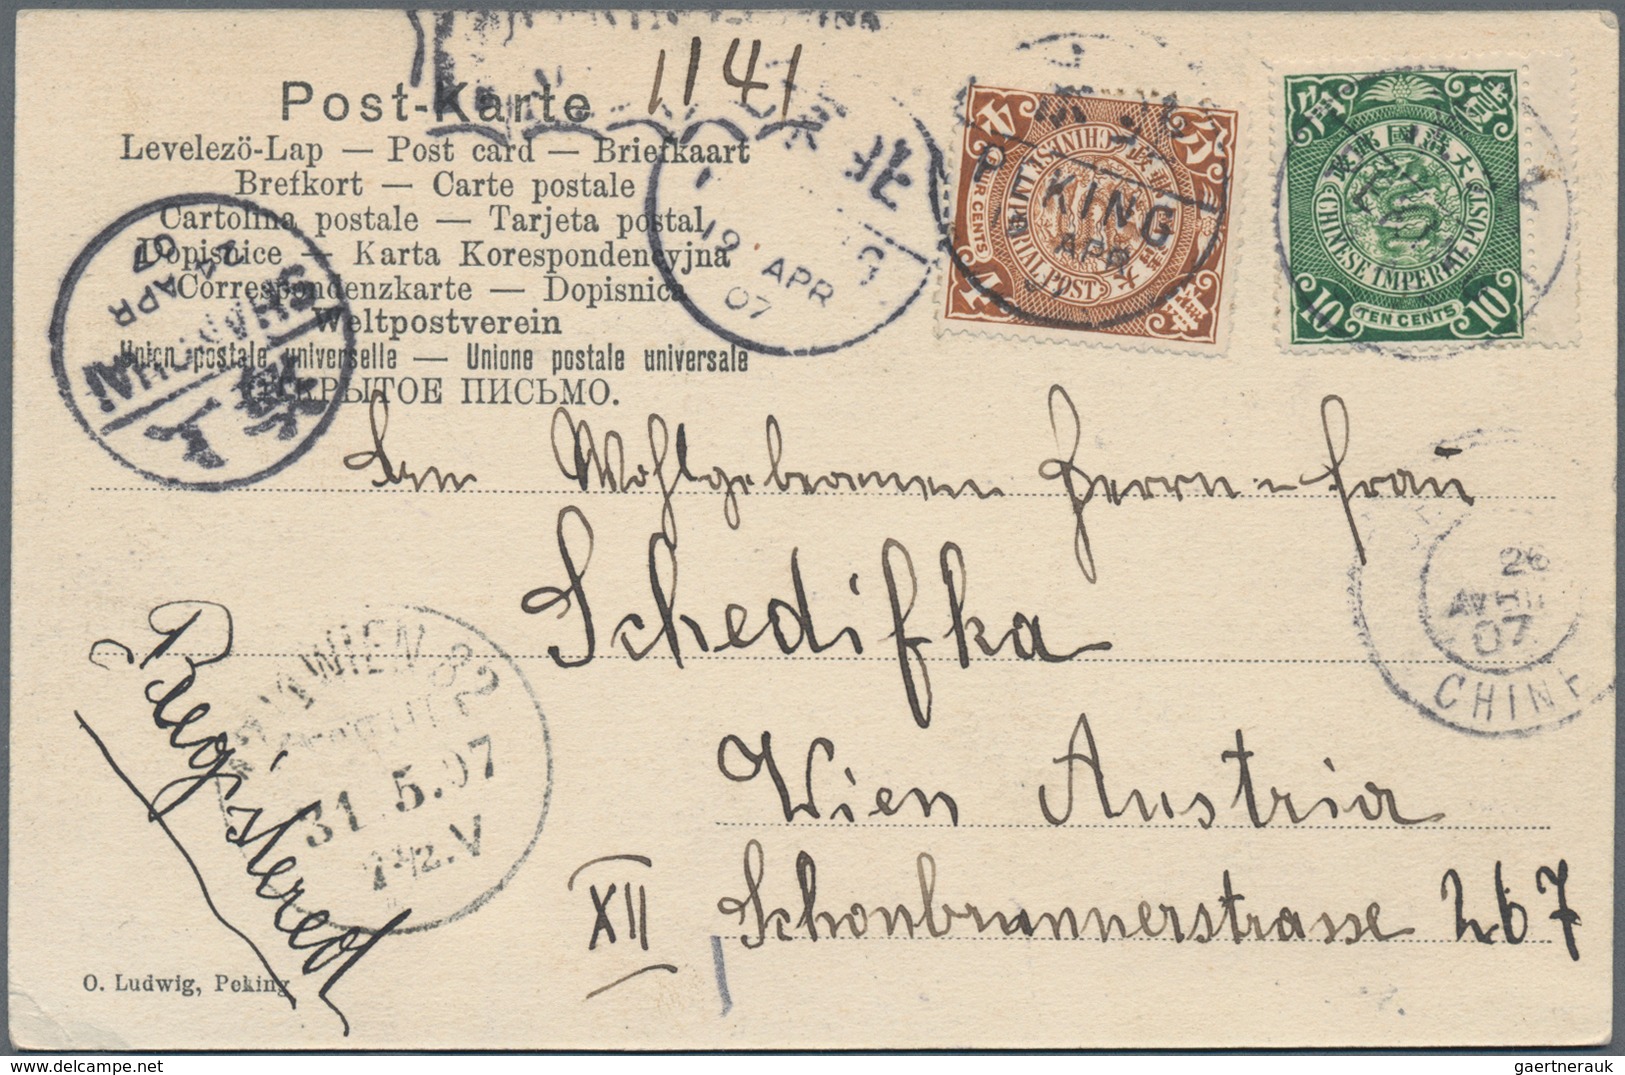 1141
Post-Karte
Levelező-Lap — Post card — Briefkaart
Brefkort — Carte postale
Cartolina postale — Tarjeta postal
Dopisnice — Karta Korespondencyjna
Correspondenzkarte — Dopisnica
Weltpostverein
Union postale universelle — Unione postale universale
ОТКРЫТОЕ ПИСЬМО.
SHANGHAI
24
APR
07
上海
19 APR
07
北
PEKING
APR
CHINESE IMPERIAL POST
FOUR CENTS
4
大清國郵政
CHINESE IMPERIAL POST
10 TEN CENTS 10
Herrn u Frau
Schedifka
Wien Austria
XII Schonbrunnerstrasse 267
Registered
WIEN 82
31.5.07
26
AVRIL
07
CHINE
O. Ludwig, Peking
gaertnerauk